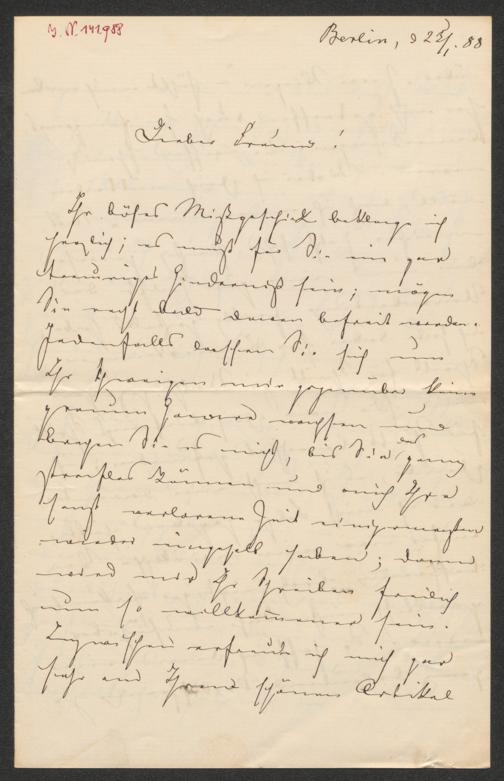 J. N. 141.988
Berlin, d 25/1. 88
Lieber Freund!
Ihr böses Mißgeschick beklage ich
herzlich; es muß für Sie ein gar
trauriges Hinderniß sein; mögen
Sie recht bald davon befreit werden.
Jedenfalls lassen Sie sich um
Ihr Schweigen mir gegenüber keine
grauen Haare wachsen und
brechen Sie es nicht, bis Sie das ganz
straflos können und auch Ihre
sonst verlorene Zeit einigermaßen
wieder eingeholt haben; dann
wird mir Ihr Schreiben freilich
um so willkommener sein.
Inzwischen erfreute ich mich gar
sehr an Ihrem schönen Artikel